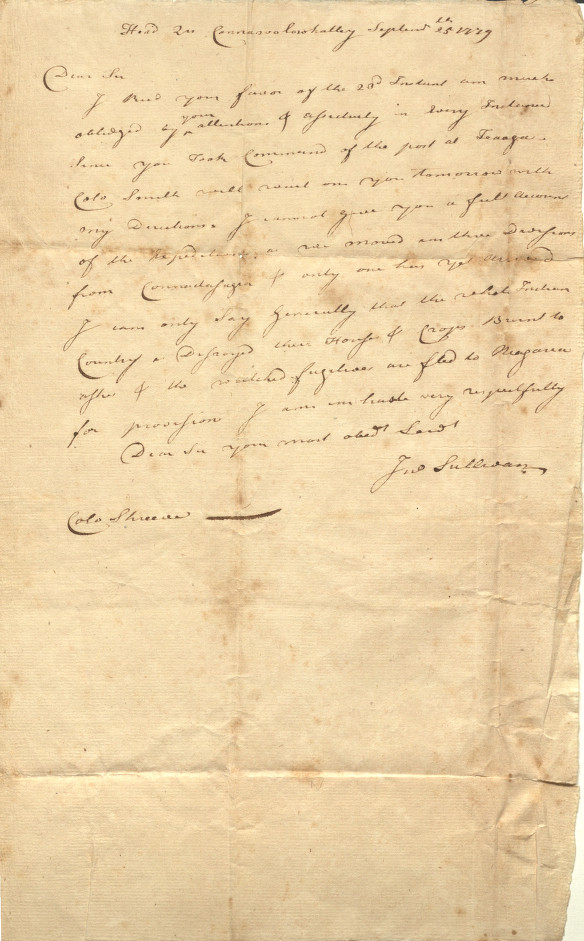 Head Qrs Connawalowhalley Septemr 25th 1779
Dear Sir
I Recd your favor of the 23d Instant am much
obliged by your attentions & assiduity in Every Instance
Since you Took Command of the post at Teaoga
Colo Smith will wait on you tomorrow with
my Directions I cannot give you a full Account
of the Expedition as we moved in three Divisions
from Connadasaga & only one has yet arrived
I can only Say Generally that the whole Indian
Country is Destroyed their Houses & Crops Burnt to
ashes & the wretched fugitives are fled to Niagara
for provision I am in haste very respectfully
Dear Sir your most obedt Servt
Jno Sullivan
Colo Shreeve